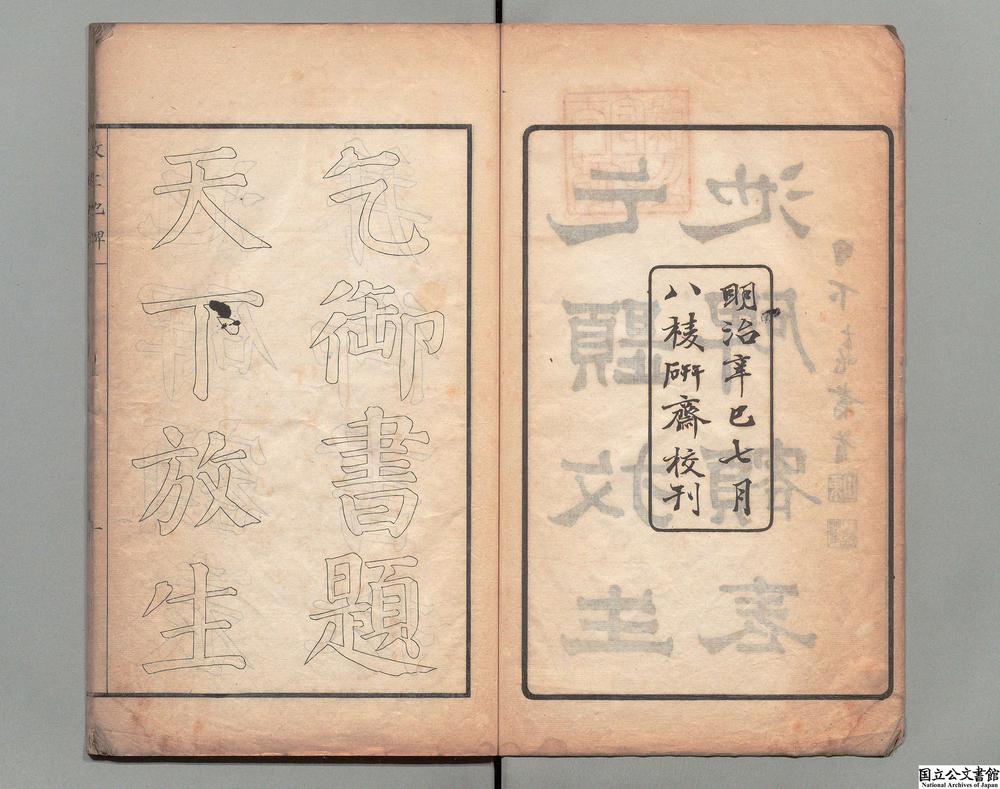 明治辛巳七月
八稜研齋校刊
乞御書題
天下放生
放生池碑
国立公文書館
National Archives of Japan